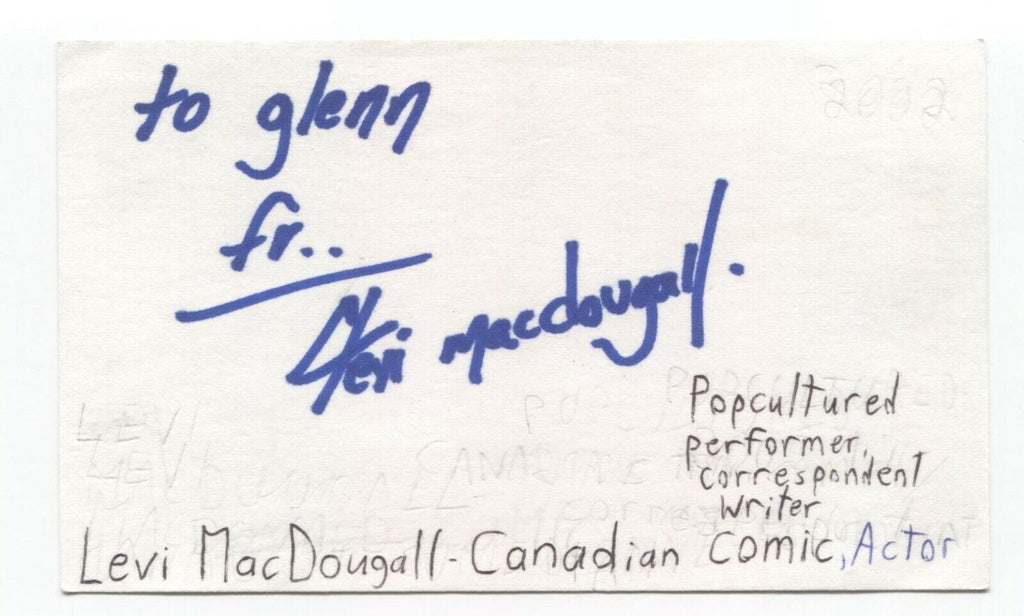 to glenn
fr..
Levi Macdougall.
Popcultured
performer,
correspondent
writer
Levi MacDougall - Canadian Comic, Actor